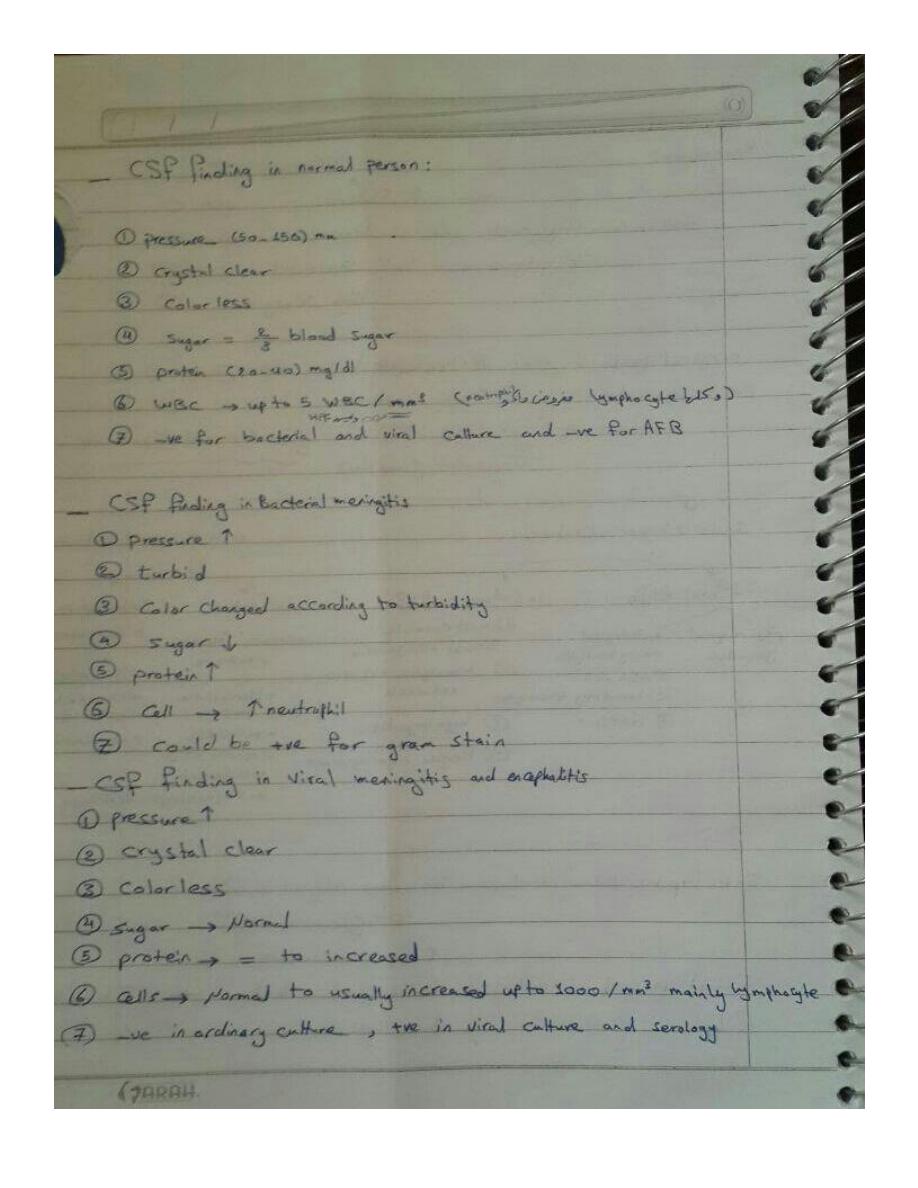 _ CSF finding in normal person:
① pressure (50-150) mm
② Crystal clear
③ Color less
④ sugar = 2/3 blood sugar
⑤ protein (20-40) mg/dl
⑥ WBC → up to 5 WBC / mm³ ( lymphocyte )
⑦ -ve for bacterial and viral culture and -ve for AFB
_ CSF finding in Bacterial meningitis
① pressure ↑
② turbid
③ Color changed according to turbidity
④ sugar ↓
⑤ protein ↑
⑥ Cell → ↑ neutrophil
⑦ Could be +ve for gram stain
_ CSF finding in viral meningitis and encephalitis
① pressure ↑
② crystal clear
③ Color less
④ sugar → Normal
⑤ protein → = to increased
⑥ cells → Normal to usually increased up to 1000 / mm³ mainly lymphocyte
⑦ -ve in ordinary culture , +ve in viral culture and serology